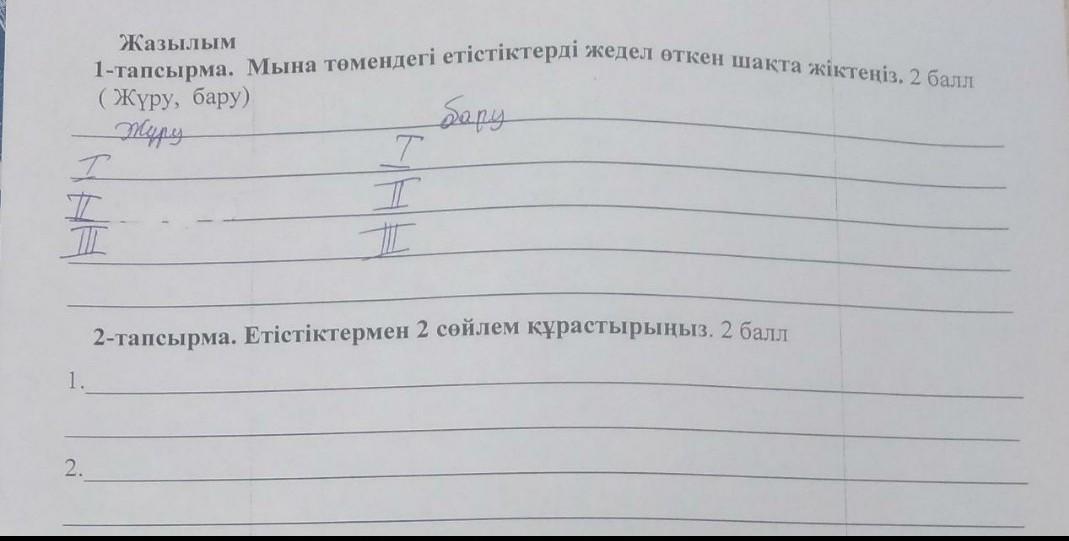 Жазылым
1-тапсырма. Мына төмендегі етістіктерді жедел өткен шақта жіктеңіз. 2 балл
( Жүру, бару)
Жүру бару
I I
II II
III III
2-тапсырма. Етістіктермен 2 сөйлем құрастырыңыз. 2 балл
1.
2.